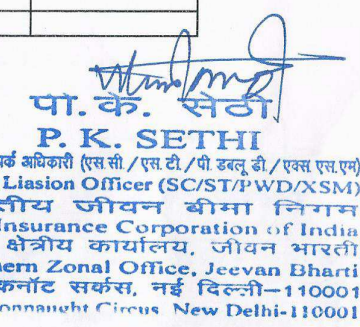 पी. के. सेठी
P. K. SETHI
र्क अधिकारी (एस सी / एस. टी / पी. डबलू. डी. / एक्स एस. एम)
Liasion Officer (SC/ST/PWD/XSM)
तीय जीवन बीमा निगम
Insurance Corporation of India
क्षेत्रीय कार्यालय, जीवन भारती
ern Zonal Office, Jeevan Bharti
कनॉट सर्कस, नई दिल्ली-110001
onnaught Circus New Delhi-110001